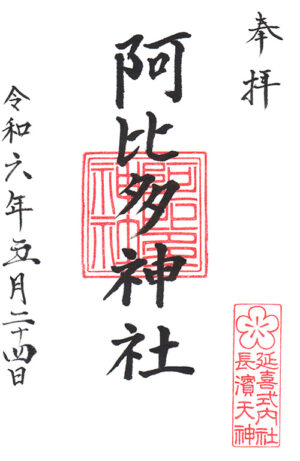 奉拝
阿比多神社
令和六年五月二十四日
延喜式内社
長濱天神